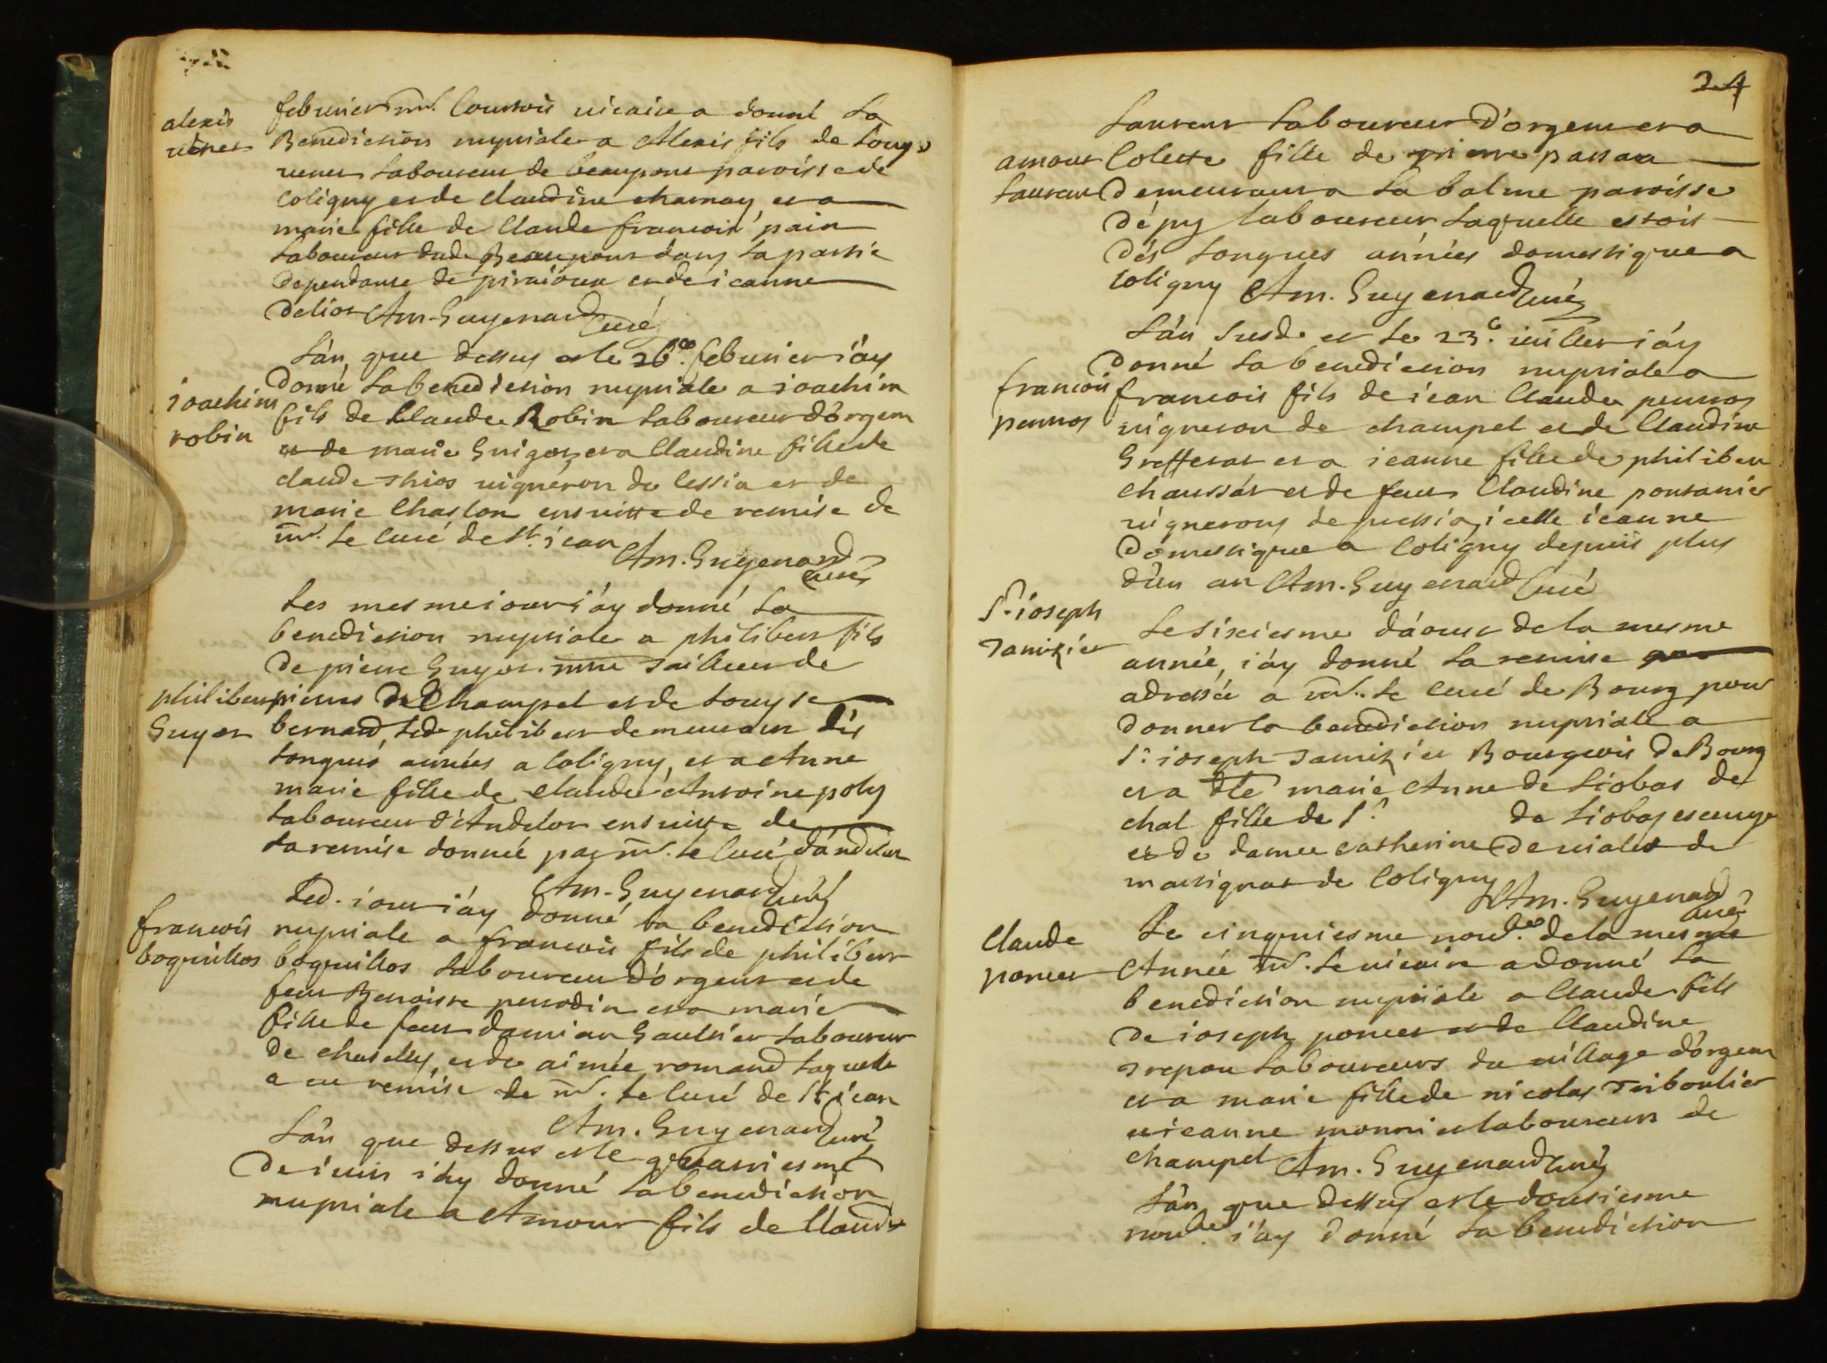 alexis
uenet
febvrier mr. Courtois uicaire a donné La
Benediction nuptiale a Alexis fils de Louys
uenet Laboureur de beaupont paroisse de
Coligny et de Claudine charnay et a
marie fille de Claude francois pain
Laboureur dud. Beaupont dans La partie
dependante de pirajoux et de ieanne
Deliot Am. Guyenard curé
ioachim
robin
Lan que dessus et le 26e. febvrier i'ay
Donné La benediction nuptiale a ioachim
fils de Claude Robin Laboureur d'orgent
et de marie Guigot, et a Claudine fille de
claude thios uigneron de Cessia et de
marie Chaslon ensuitte de remise de
mr. Le Curé de St. iean
Am. Guyenard
curé
Les mesme iour i'ay donné La
benediction nuptiale a philibert fils
De pierre Guyot mre tailleur de
philibert
Guyot
pierres De Champel et de Louyse
bernard, Led. philibert demeurant dés
Longues années a Coligny, et a Anne
marie fille de claude Antoine poly
Laboureur d'Andelot ensuitte de
La remise donnée par mr. Le Curé d'andelot
Am. Guyenard curé
francois
boquillos
Led. iour i'ay donné La benediction
nuptiale a francois fils de philibert
boquillos Laboureur d'orgent et de
feue Benoiste perrodin et a marie
fille de feu damian Gaultier Laboureur
de chaselly, et de aimée romand Laquelle
a eu remise de mr. Le Curé de St iean
Am. Guyenard curé
L'an que dessus et le quatriesme
De iuin i'ay donné La benediction
nuptiale a Amour fils de Claude
24
Laurent Laboureur D'orgent et a
amour
Laurent
Colette fille de pierre passaa
Demeurant a La balme paroisse
D'épy Laboureur Laquelle estoit
Dés Longues années domestique a
Coligny Am. Guyenard curé
L'an Susd. et le 23e. iuillet i'ay
francois
pennos
Donné La benediction nuptiale a
francois fils de iean Claude pennos
uigneron de champel et de Claudine
Greffetat et a ieanne fille de philibert
Chaussat et de feue Claudine pontanier
uignerons de pressia, icelle ieanne
Domestique a Coligny depuis plus
d'un an Am. Guyenard Curé
Sr. ioseph
Tamizier
Le Sixiesme d'aoust de la mesme
année, i'ay donné La remise
adressée a mr. Le Curé de Bourg pour
Donner la benediction nuptiale a
Sr. ioseph Tamizier Bourgeois De Bourg
et a dlle marie Anne de Liobas de
chal fille de Sr.     de Liobas escuyer
et de dame Catherine De uialet de
marsignat de Coligny
Am. Guyenard
curé
Claude
poncet
Le cinquiesme novbe. de la mesme
Année mr. Le uicaire a donné La
benediction nuptiale a Claude fils
De ioseph poncet et de Claudine
trepau Laboureurs du uillage d'orgent
et a marie fille de nicolas Triboulier
et ieanne monnier Laboureurs de
champel Am. Guyenard curé
L'an que dessus et le dousiesme
novbe. i'ay Donné La benediction